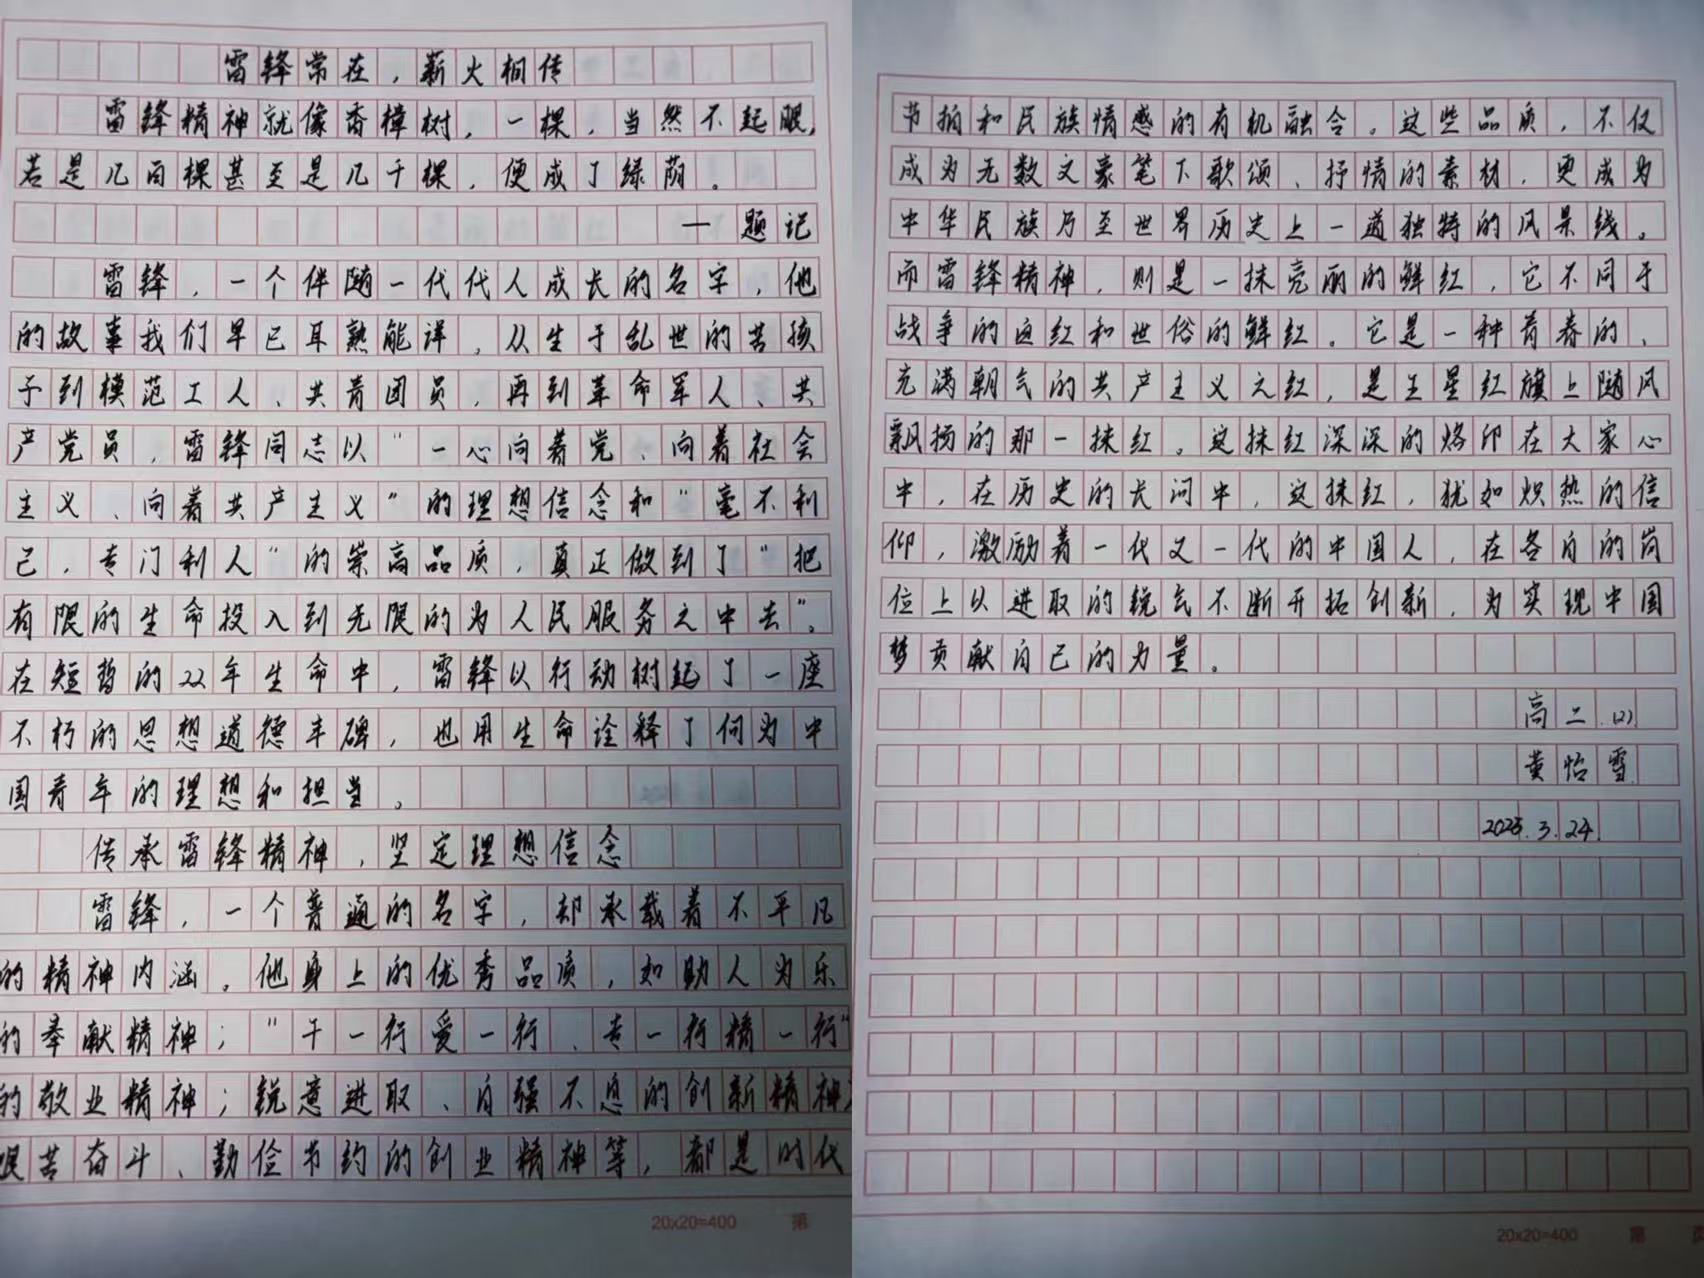 雷锋常在，薪火相传
雷锋精神就像香樟树，一棵，当然不起眼，
若是几百棵甚至是几千棵，便成了绿荫。
—题记
雷锋，一个伴随一代代人成长的名字，他
的故事我们早已耳熟能详，从生于乱世的苦孩
子到模范工人、共青团员，再到革命军人、共
产党员，雷锋同志以“一心向着党、向着社会
主义、向着共产主义”的理想信念和“毫不利
己，专门利人”的崇高品质，真正做到了“把
有限的生命投入到无限的为人民服务之中去”。
在短暂的22年生命中，雷锋以行动树起了一座
不朽的思想道德丰碑，也用生命诠释了何为中
国青年的理想和担当。
传承雷锋精神，坚定理想信念
雷锋，一个普通的名字，却承载着不平凡
的精神内涵。他身上的优秀品质，如助人为乐
的奉献精神；“干一行爱一行、专一行精一行”
的敬业精神；锐意进取、自强不息的创新精神；
艰苦奋斗、勤俭节约的创业精神等，都是时代
20x20=400 第
节拍和民族情感的有机融合。这些品质，不仅
成为无数文豪笔下歌颂、抒情的素材，更成为
中华民族乃至世界历史上一道独特的风景线。
而雷锋精神，则是一抹亮丽的鲜红，它不同于
战争的血红和世俗的鲜红。它是一种青春的、
充满朝气的共产主义之红，是五星红旗上随风
飘扬的那一抹红。这抹红深深的烙印在大家心
中，在历史的长河中，这抹红，犹如炽热的信
仰，激励着一代又一代的中国人，在各自的岗
位上以进取的锐气不断开拓创新，为实现中国
梦贡献自己的力量。
高二（2）
黄怡雪
2025.3.24.
20x20=400 第 页